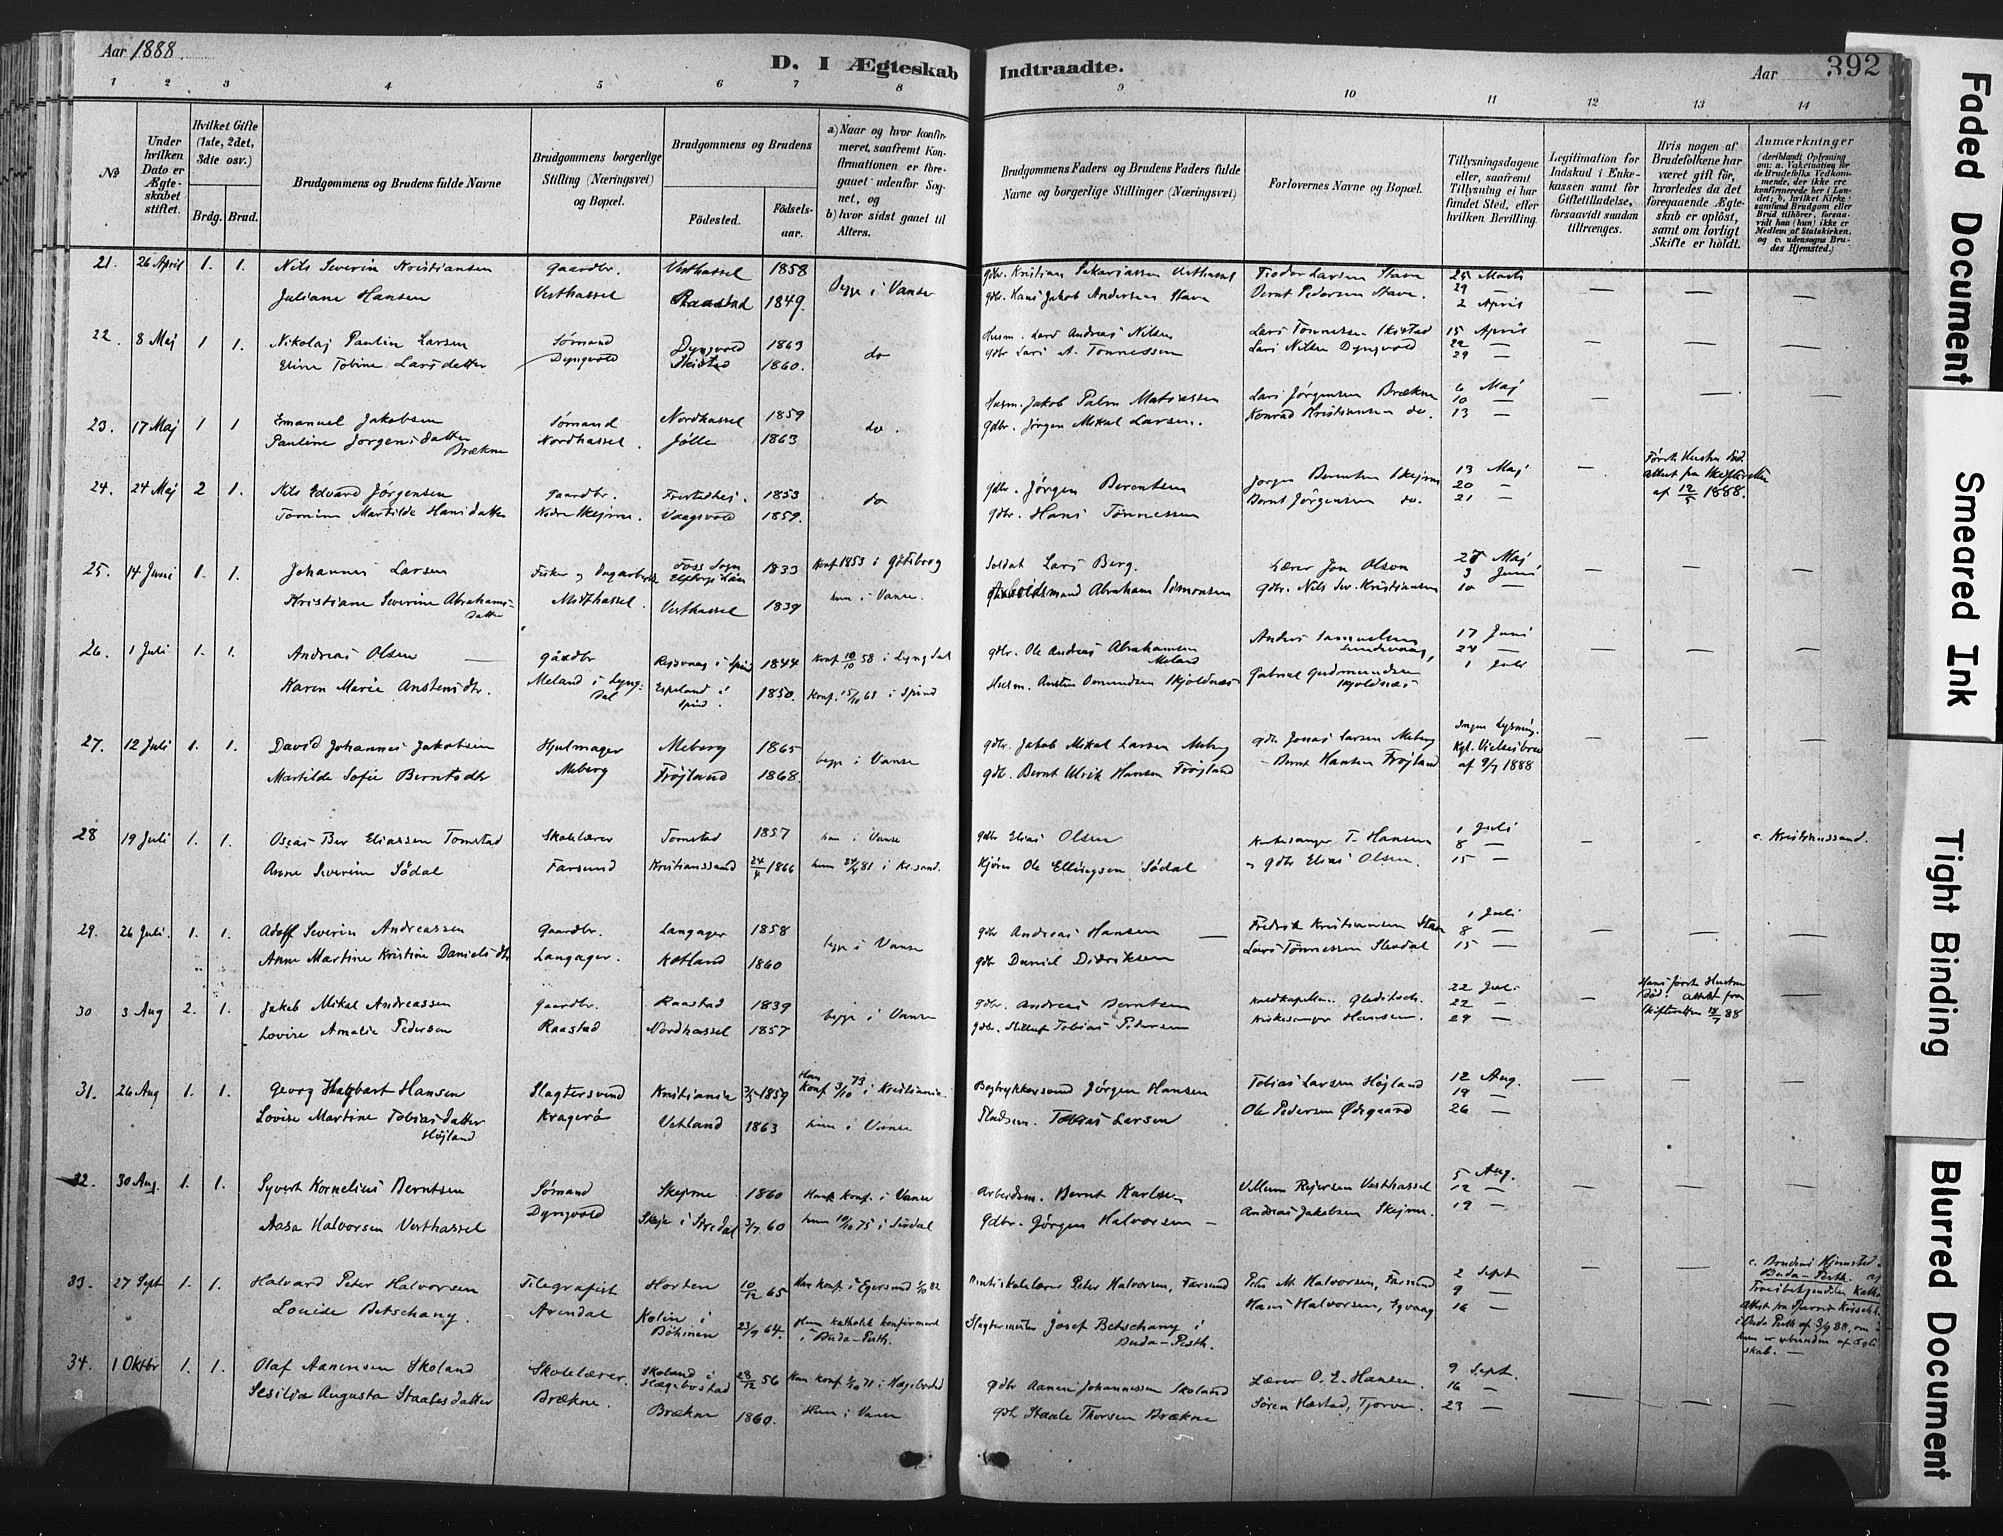 Aar 1888
D. I Ægteskab Indtraadte.
Aar 392
1 2 3 4 5 6 7 8 9 10 11 12 13 14
No
Under hvilken Dato er Ægteskabet stiftet.
Hvilket Gifte (1ste, 2det, 3die osv.)
Brdg. Brud.
Brudgommens og Brudens fulde Navne
Brudgommens borgerlige Stilling (Næringsvei) og Bopæl.
Brudgommens og Brudens
Födested.
Födsels-aar.
a) Naar og hvor konfirmeret, saafremt Konfirmationen er foregaaet udenfor Sognet, og
b) hvor sidst gaaet til Alters.
Brudgommens Faders og Brudens Faders fulde Navne og borgerlige Stillinger (Næringsvei)
Forlovernes Navne og Bopæl.
Tillysningsdagene eller, saafremt Tillysning ei har fundet Sted, efter hvilken Bevilling.
Legitimation for Indskud i Enkekassen samt for Giftetilladelse, forsaavidt saadan tiltrænges.
Hvis nogen af Brudefolkene har været gift för, hvorledes da det foregaaende Ægteskab er oplöst, samt om lovligt Skifte er holdt.
Anmærkninger
(deriblandt Oplysning om: a. Vakcination for de Brudefolks Vedkommende, der ikke ere konfirmerede her i Landet; b. hvilket Kirkesamfund Brudgom eller Brud tilhörer, forsaavidt han (hun) ikke er Medlem af Statskirken, og c. udensogns Brudes Hjemsted.)
21. 26 April 1. 1. Nils Severin Kristiansen Gaardbr. Vesthassel 1858 Begge i Vanse gdbr. Kristian Sakariassen Vesthassel Teodor Larsen Stava 25 Marts
Juliane Hansen Vesthassel Raastad 1849. gdbr. Hans Jakob Andersen Stava Bernt Pedersen Stava. 29 —
2 April
22. 8 Maj 1 1. Nikolaj Paulin Larsen Sømand Dyngvold 1863 do Husm. Lars Andreas Nilsen Lars Tønnessen Skistad 15 April
Eline Tobine Larsdatter Dyngvold Skistad 1860. gdbr Lars A. Tønnessen Lars Nilsen Dyngvold 22 —
29 —
23. 17 Maj 1 1 Emanuel Jakobsen Sømand Nordhassel 1859 do. Husm. Jakob Palm Matiassen Lars Jørgensen Brækne 6 Maj
Pauline Jørgensdatter Brækne Nordhassel Jølle 1863 gdbr. Jørgen Mikal Larsen. Konrad Kristiansen do. 10 —
13 —
24. 24 Maj 2 1. Nils Edvard Jørgensen Gaardbr. 1853 do gdbr. Jørgen Berentsen Jørgen Berntsen Skejme 13 Maj
Martilde Hansdatter Nedre Skejme. Vaagsvold 1859. gdbr. Hans Tønnessen Bernt Jørgensen do. 20 —
21 —
Første Hustru død. Attest fra Skifteretten af 12/5 1888.
25. 14 Juni 1. 1. Johannes Larsen Fisker og Dagarbeider Foss Sogn Elfsborgs Län 1833 Konf 1853 i Göteborg Soldat Lars Berg. Lærer Jon Olson 27 Maj
Kristiane Severine Abrahamsdatter Midthassel. Vesthassel 1839 hun i Vanse. Arbeidsmand Abraham Simonsen gdbr. Nils Sev. Kristiansen 3 Juni
10 —
26. 1 Juli 1. 1. Andreas Olsen — gaardbr 1844 Konf 10/10 58 i Lyngdal gdbr. Ole Andreas Abrahamsen Meland Anders Samuelsen 17 Juni
Karen Marie Anstensdtr. Meland i Lyngdal Espeland i Spind. 1850. Konf. 15/10 65 i Spind Husm. Austen Omundsen Skjoldnæs Gabriel Gudmundsen Skjoldnæs 24 —
1 Juli
27. 12 Juli 1. 1. David Johannes Jakobsen Hjulmager Meberg 1865 begge i Vanse gdbr. Jakob Mikal Larsen Meberg gdbr Jonas Larsen Meberg Ingen Lysning.
Martilde Sofie Berntsdtr Meberg Frøjland 1868. gdbr. Bernt Ulrik Hansen Frøjland Bernt Hansen Frøjland Kgl. Vielsesbrev af 9/7 1888
28 19 Juli 1. 1. Oscar Ber Eliassen Tomstad Skolelærer Tomstad 1857 han i Vanse gdbr Elias Olsen Kirkesanger T. Hansen 1 Juli c. Kristianssand.
Anne Severine Sødal Farsund Kristianssand 24/4 1866 hun 24/4 81 i Kr.sand. Ole Ellingsen Sødal gdbr Elias Olsen. 8 —
15 —
29. 26 Juli. 1. 1. Adolf Severin Andreassen Gaardbr. Langager 1858 begge i Vanse gdbr Andreas Hansen — Fredrik Kristiansen Stava 1 Juli
Anne Martine Kristine Danielsdtr Langager. Kotland 1860 gdbr Daniel Didriksen Lars Tønnessen Slevdal 8 —
15 —
30 3 Aug 2. 1. Jakob Mikal Andreassen gaardbr. Raastad 1839 begge i Vanse gdbr. Andreas Berntsen Gleditsch. 22 Juli
Lovise Amalie Pedersen Raastad Nordhassel 1857 gdbr. Tobias Pedersen Kirkesanger Hansen. 22 —
29 —
Hans første Hustru død. Attest fra Skifteretten 18/7 88
31. 26 Aug 1. 1. Georg Halbart Hansen Slagtersvend Kristiania 3/5 1859 Han Konf 3/10 73 i Kristiania. Bogtrykkersvend Jørgen Hansen Tobias Larsen Højland 12 Aug.
Lovise Martine Tobiasdatter Højland Kragerø Vetland 1863 hun i Vanse Pladsm. Tobias Larsen Ole Pedersen Ødegaard 19 —
26 —
32. 30 Aug. 1. 1. Syvert Kornelius Berntsen Sømand Skejme 1860 Han konf. i Vanse Arbeidsm. Bernt Karlsen Villum Rejersen Vesthassel 5 Aug.
Aasa Halvorsen Vesthassel Dyngvold Skeje i Siredal 3/7 60 hun 10/10 75 i Siredal gdbr. Jørgen Halvorsen — Andreas Jakobsen Skejme. 12 —
19 —
33. 27 Sept 1. 1. Halvard Peter Halvorsen Telegrafist Horten 10/12 65 Han konf. i Egersund 1/10 82 Peter Halvorsen, Farsund Peter M. Halvorsen, Farsund 2 Sept
Louise Betschany. Arendal Kolin i Böhmen 23/9 64. Hun katholsk konfirmeret i Buda-Pesth. Slagtermester Josef Betschany i Buda-Pesth. Hans Halvorsen, Egvaag 9 —
16 —
c. Brudens Hjemsted Buda-Pesth. af Troesbekjendelse Kath. Attest fra i Buda Pesth af 3/9 88, om hun er ubunden af Ægteskab. —
34. 1 Oktbr 1. 1. Olaf Aanensen Skoland Skolelærer. Skoland i Hægebostad 28/12 56 Han konf 1/10 71 i Hægebostad Gdbr Aanen Johannessen Skoland Lærer O. E. Hansen. 9 Sept.
Sesilda Augusta Staalesdatter Brækne. Brækne 1860. Hun i Vanse gdb Staale Thorsen Brækne Søren Hestad, Tjørve. 16 —
23 —
Faded Document
Smeared Ink
Tight Binding
Blurred Document